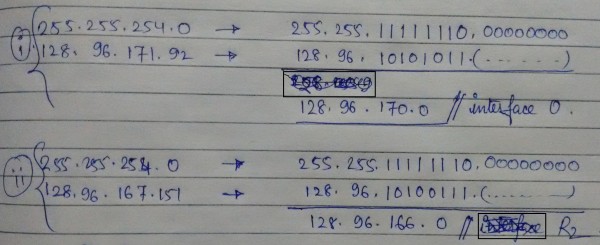 i) 255.255.254.0 → 255.255.11111110.00000000
128.96.171.92 → 128.96.10101011.(......)
128.96.170.0 // interface 0.
ii) 255.255.254.0 → 255.255.11111110.00000000
128.96.167.151 → 128.96.10100111.(......)
128.96.166.0 // R2